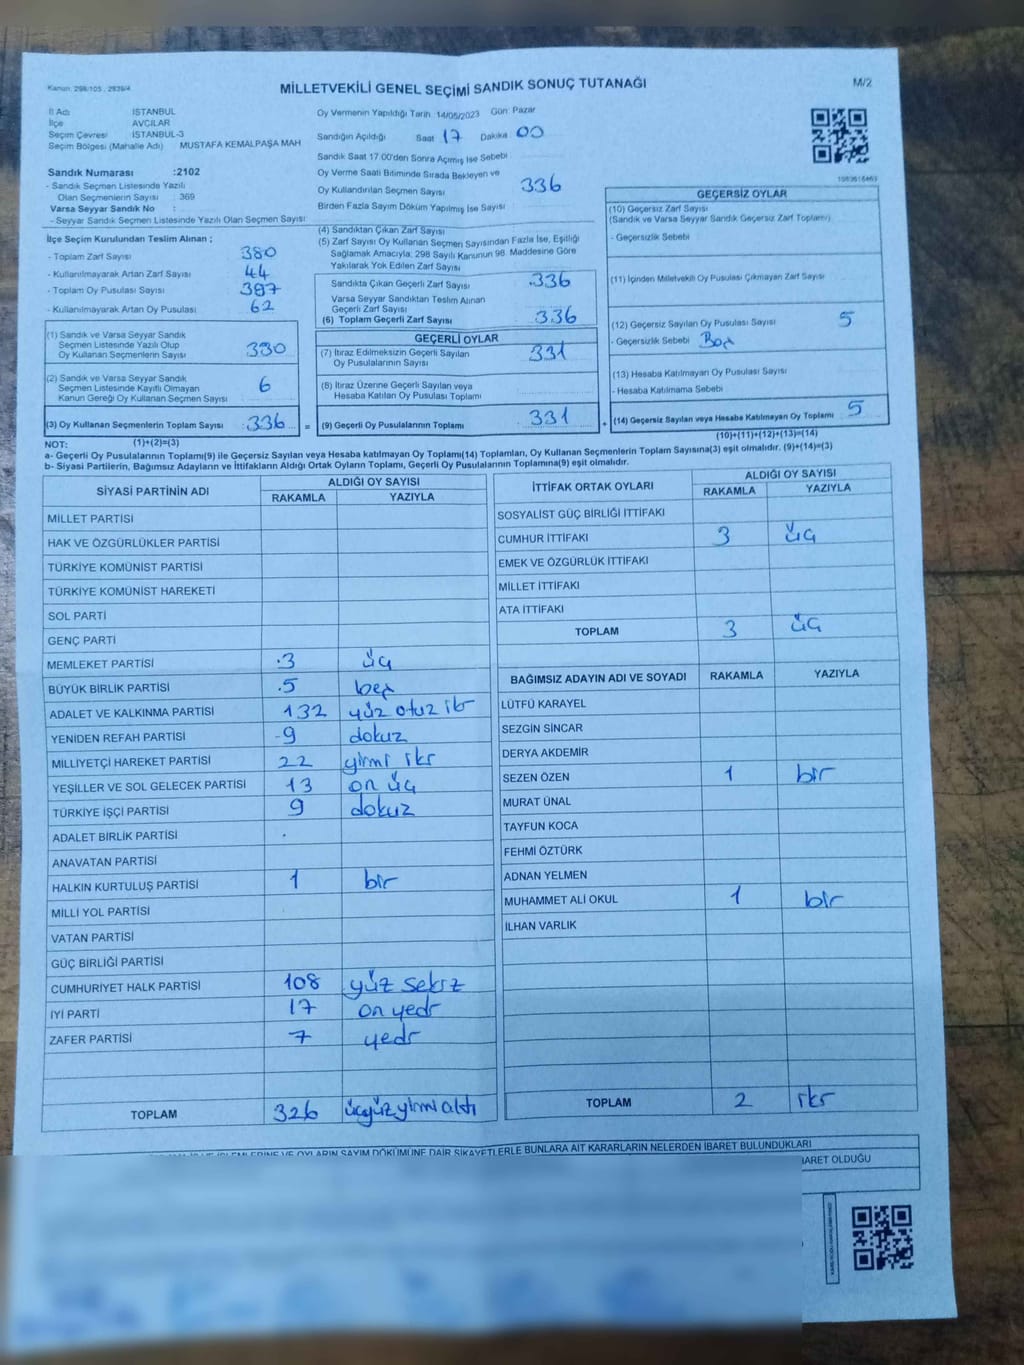 Kanun: 298/105 , 2839/4
MİLLETVEKİLİ GENEL SEÇİMİ SANDIK SONUÇ TUTANAĞI
M/2
İl Adı İSTANBUL
İlçe AVCILAR
Seçim Çevresi İSTANBUL-3
Seçim Bölgesi (Mahalle Adı) MUSTAFA KEMALPAŞA MAH
Sandık Numarası :2102
- Sandık Seçmen Listesinde Yazılı
Olan Seçmenlerin Sayısı : 369
Varsa Seyyar Sandık No :
- Seyyar Sandık Seçmen Listesinde Yazılı Olan Seçmen Sayısı:
Oy Vermenin Yapıldığı Tarih 14/05/2023 Gün: Pazar
Sandığın Açıldığı Saat 17 Dakika 00
Sandık Saat 17.00'den Sonra Açımış İse Sebebi
Oy Verme Saati Bitiminde Sırada Bekleyen ve
Oy Kullandırılan Seçmen Sayısı 336
Birden Fazla Sayım Döküm Yapılmış İse Sayısı
İlçe Seçim Kurulundan Teslim Alınan ;
- Toplam Zarf Sayısı 380
- Kullanılmayarak Artan Zarf Sayısı 44
- Toplam Oy Pusulası Sayısı 387
- Kullanılmayarak Artan Oy Pusulası 62
(1) Sandık ve Varsa Seyyar Sandık
Seçmen Listesinde Yazılı Olup
Oy Kullanan Seçmenlerin Sayısı 330
(2) Sandık ve Varsa Seyyar Sandık
Seçmen Listesinde Kayıtlı Olmayan
Kanun Gereği Oy Kullanan Seçmen Sayısı 6
(3) Oy Kullanan Seçmenlerin Toplam Sayısı 336 =
(4) Sandıktan Çıkan Zarf Sayısı
(5) Zarf Sayısı Oy Kullanan Seçmen Sayısından Fazla İse, Eşitliği
Sağlamak Amacıyla; 298 Sayılı Kanunun 98. Maddesine Göre
Yakılarak Yok Edilen Zarf Sayısı
Sandıkta Çıkan Geçerli Zarf Sayısı 336
Varsa Seyyar Sandıktan Teslim Alınan
Geçerli Zarf Sayısı
(6) Toplam Geçerli Zarf Sayısı 336
GEÇERLİ OYLAR
(7) İtiraz Edilmeksizin Geçerli Sayılan
Oy Pusulalarının Sayısı 331
(8) İtiraz Üzerine Geçerli Sayılan veya
Hesaba Katılan Oy Pusulası Toplamı
(9) Geçerli Oy Pusulalarının Toplamı 331 +
1583616463
GEÇERSİZ OYLAR
(10) Geçersiz Zarf Sayısı
(Sandık ve Varsa Seyyar Sandık Geçersiz Zarf Toplamı)
- Geçersizlik Sebebi
(11) İçinden Milletvekili Oy Pusulası Çıkmayan Zarf Sayısı
(12) Geçersiz Sayılan Oy Pusulası Sayısı 5
- Geçersizlik Sebebi Boş
(13) Hesaba Katılmayan Oy Pusulası Sayısı
- Hesaba Katılmama Sebebi
(14) Geçersiz Sayılan veya Hesaba Katılmayan Oy Toplamı 5
NOT: (1)+(2)=(3) (10)+(11)+(12)+(13)=(14)
a- Geçerli Oy Pusulalarının Toplamı(9) ile Geçersiz Sayılan veya Hesaba katılmayan Oy Toplamı(14) Toplamları, Oy Kullanan Seçmenlerin Toplam Sayısına(3) eşit olmalıdır. (9)+(14)=(3)
b- Siyasi Partilerin, Bağımsız Adayların ve İttifakların Aldığı Ortak Oyların Toplamı, Geçerli Oy Pusulalarının Toplamına(9) eşit olmalıdır.
SİYASİ PARTİNİN ADI ALDIĞI OY SAYISI
RAKAMLA YAZIYLA
MİLLET PARTİSİ
HAK VE ÖZGÜRLÜKLER PARTİSİ
TÜRKİYE KOMÜNİST PARTİSİ
TÜRKİYE KOMÜNİST HAREKETİ
SOL PARTİ
GENÇ PARTİ
MEMLEKET PARTİSİ 3 üç
BÜYÜK BİRLİK PARTİSİ 5 beş
ADALET VE KALKINMA PARTİSİ 132 yüz otuz iki
YENİDEN REFAH PARTİSİ 9 dokuz
MİLLİYETÇİ HAREKET PARTİSİ 22 yirmi iki
YEŞİLLER VE SOL GELECEK PARTİSİ 13 on üç
TÜRKİYE İŞÇİ PARTİSİ 9 dokuz
ADALET BİRLİK PARTİSİ
ANAVATAN PARTİSİ
HALKIN KURTULUŞ PARTİSİ 1 bir
MİLLİ YOL PARTİSİ
VATAN PARTİSİ
GÜÇ BİRLİĞİ PARTİSİ
CUMHURİYET HALK PARTİSİ 108 yüz sekiz
İYİ PARTİ 17 on yedi
ZAFER PARTİSİ 7 yedi
TOPLAM 326 üçyüzyirmialtı
İTTİFAK ORTAK OYLARI ALDIĞI OY SAYISI
RAKAMLA YAZIYLA
SOSYALİST GÜÇ BİRLİĞİ İTTİFAKI
CUMHUR İTTİFAKI 3 üç
EMEK VE ÖZGÜRLÜK İTTİFAKI
MİLLET İTTİFAKI
ATA İTTİFAKI
TOPLAM 3 üç
BAĞIMSIZ ADAYIN ADI VE SOYADI RAKAMLA YAZIYLA
LÜTFÜ KARAYEL
SEZGİN SİNCAR
DERYA AKDEMİR
SEZEN ÖZEN 1 bir
MURAT ÜNAL
TAYFUN KOCA
FEHMİ ÖZTÜRK
ADNAN YELMEN
MUHAMMET ALİ OKUL 1 bir
İLHAN VARLIK
TOPLAM 2 iki
OYLARIN SAYIM DÖKÜMÜNE DAİR ŞİKAYETLERLE BUNLARA AİT KARARLARIN NELERDEN İBARET BULUNDUKLARI
İBARET OLDUĞU